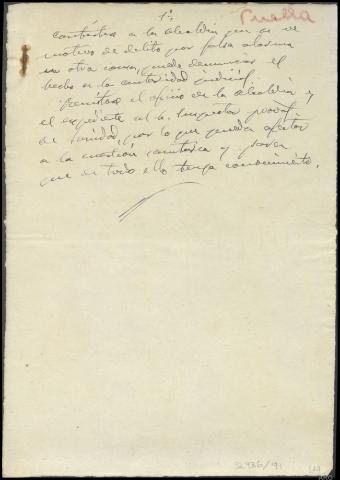 1º
Puebla
Contestar a la alcaldía que si ve
motivo de delito por falsa alarma
u otra causa, puede denunciar el
hecho a la autoridad judicial.
Remítase el oficio de la alcaldía y
el expediente al Sr. Inspector provl
de Sanidad, por lo que pueda afectar
a la cuestión sanitaria y para
que de todo ello tenga conocimiento.
2936/91